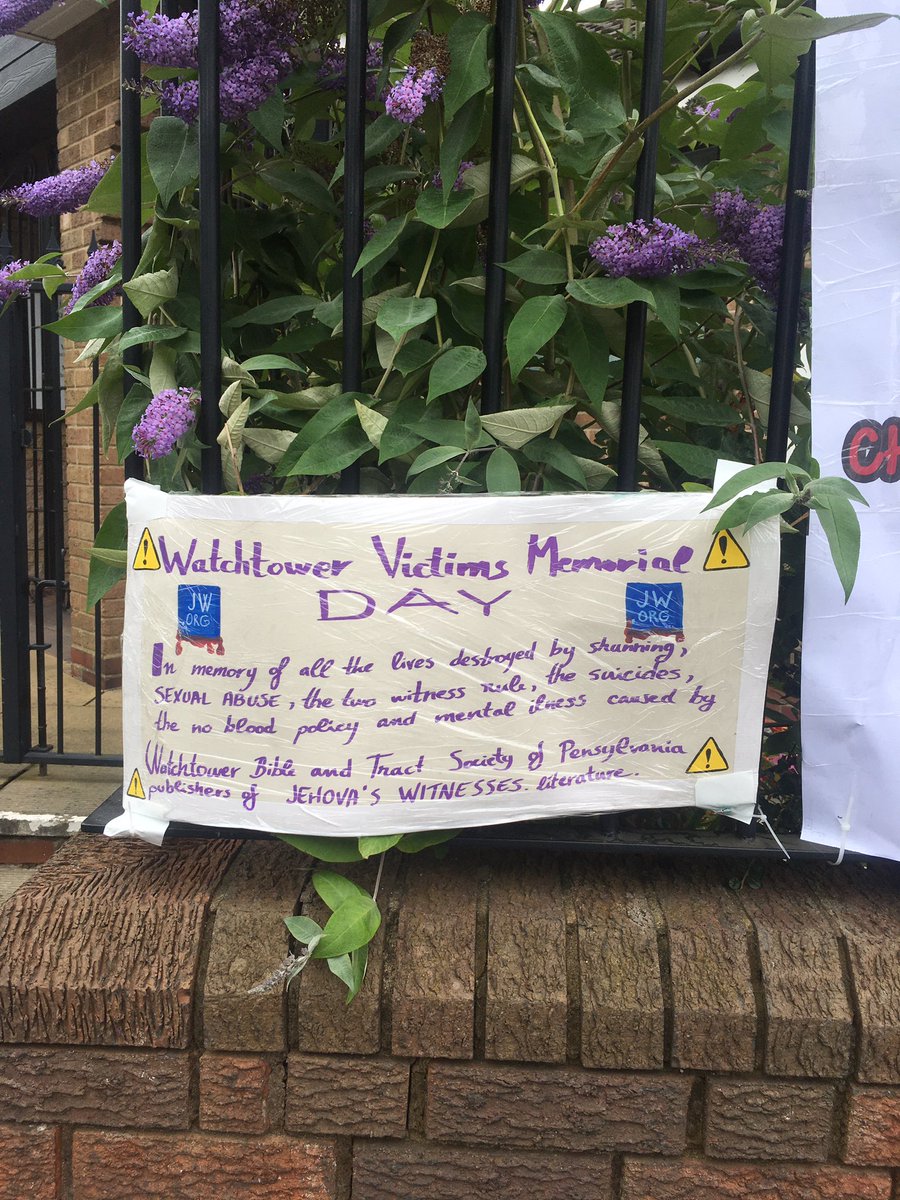 Watchtower Victims Memorial
DAY
JW
.ORG
JW
.ORG
In memory of all the lives destroyed by shunning,
SEXUAL ABUSE, the two witness rule, the suicides,
the no blood policy and mental ilness caused by
Watchtower Bible and Tract Society of Pensylvania
publishers of JEHOVA'S WITNESSES. literature.
CH